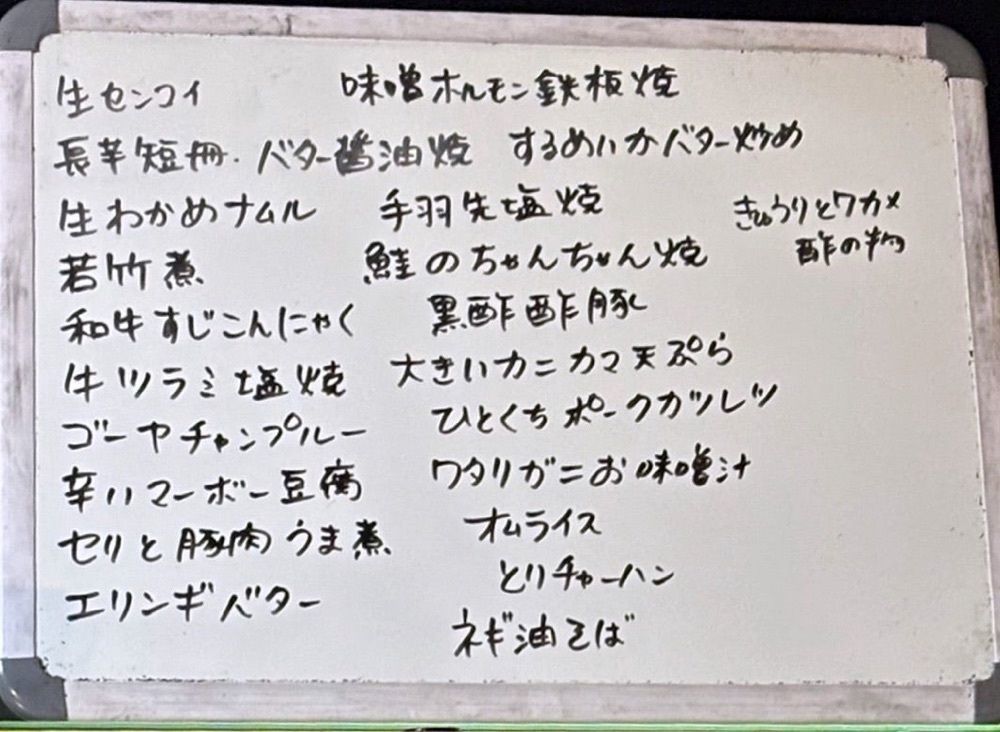 生センコイ
長芋短冊・バター醤油焼
生わかめナムル
若竹煮
和牛すじこんにゃく
牛ツラミ塩焼
ゴーヤチャンプルー
辛いマーボー豆腐
セリと豚肉うま煮
エリンギバター
味噌ホルモン鉄板焼
するめいかバター炒め
手羽先塩焼
鮭のちゃんちゃん焼
黒酢酢豚
大きいカニカマ天ぷら
ひとくちポークカツレツ
ワタリガニお味噌汁
オムライス
とりチャーハン
ネギ油そば
きゅうりとワカメ
酢の物